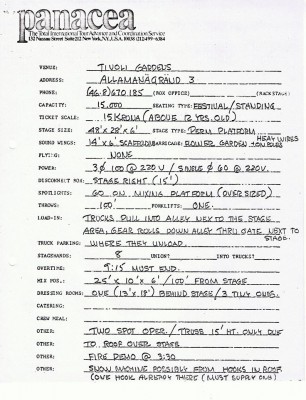 panacea
The Total International Tour Advance and Coordination Service
132 Nassau Street Suite 212 New York, N.Y., U.S.A. 10038 (212) 499-6384
VENUE: TIVOLI GARDENS
ADDRESS: ALLAMANÄGRAUD 3
PHONE: (46.8) 670185 (BOX OFFICE) (BACKSTAGE)
CAPACITY: 15,000 SEATING TYPE: FESTIVAL/STANDING
TICKET SCALE: 15 KRONA (ABOVE 12 YRS. OLD)
STAGE SIZE: 48'X 28'X 6' STAGE TYPE: PERM PLATFORM
SOUND WINGS: 14'X 6' SCAFFOLD BARRICADE: FLOWER GARDEN HEAVY WIRES
FLYING: NONE
POWER: 3Ø 100 @ 220V / SINGLE Ø 60 @ 220V.
DISCONNECT POS: STAGE RIGHT (15')
SPOTLIGHTS: GO ON MIXING PLATFORM (OVERSIZED)
THROWS: 100' FORKLIFTS: ONE.
LOAD-IN: TRUCKS PULL INTO ALLEY NEXT TO THE STAGE
AREA, GEAR ROLLS DOWN ALLEY THRU GATE NEXT TO
STAGE.
TRUCK PARKING: WHERE THEY UNLOAD.
STAGEHANDS: 8 UNION INTO TRUCKS?
OVERTIME: 9:15 MUST END.
MIX POS.: 25'X 10'X 6'/100' FROM STAGE
DRESSING ROOMS: ONE (13'X 18') BEHIND STAGE/3 TINY ONES.
CATERING:
CREW MEAL:
OTHER: TWO SPOT OPER./TRUSS 15' HT. ONLY DUE
OTHER: TO ROOF OVER STAGE
OTHER: FIRE DEMO @ 3:30
OTHER: SNOW MACHINE POSSIBLY FROM HOOKS IN ROOF
(ONE HOOK ALREADY THERE (MUST SUPPLY OWN)